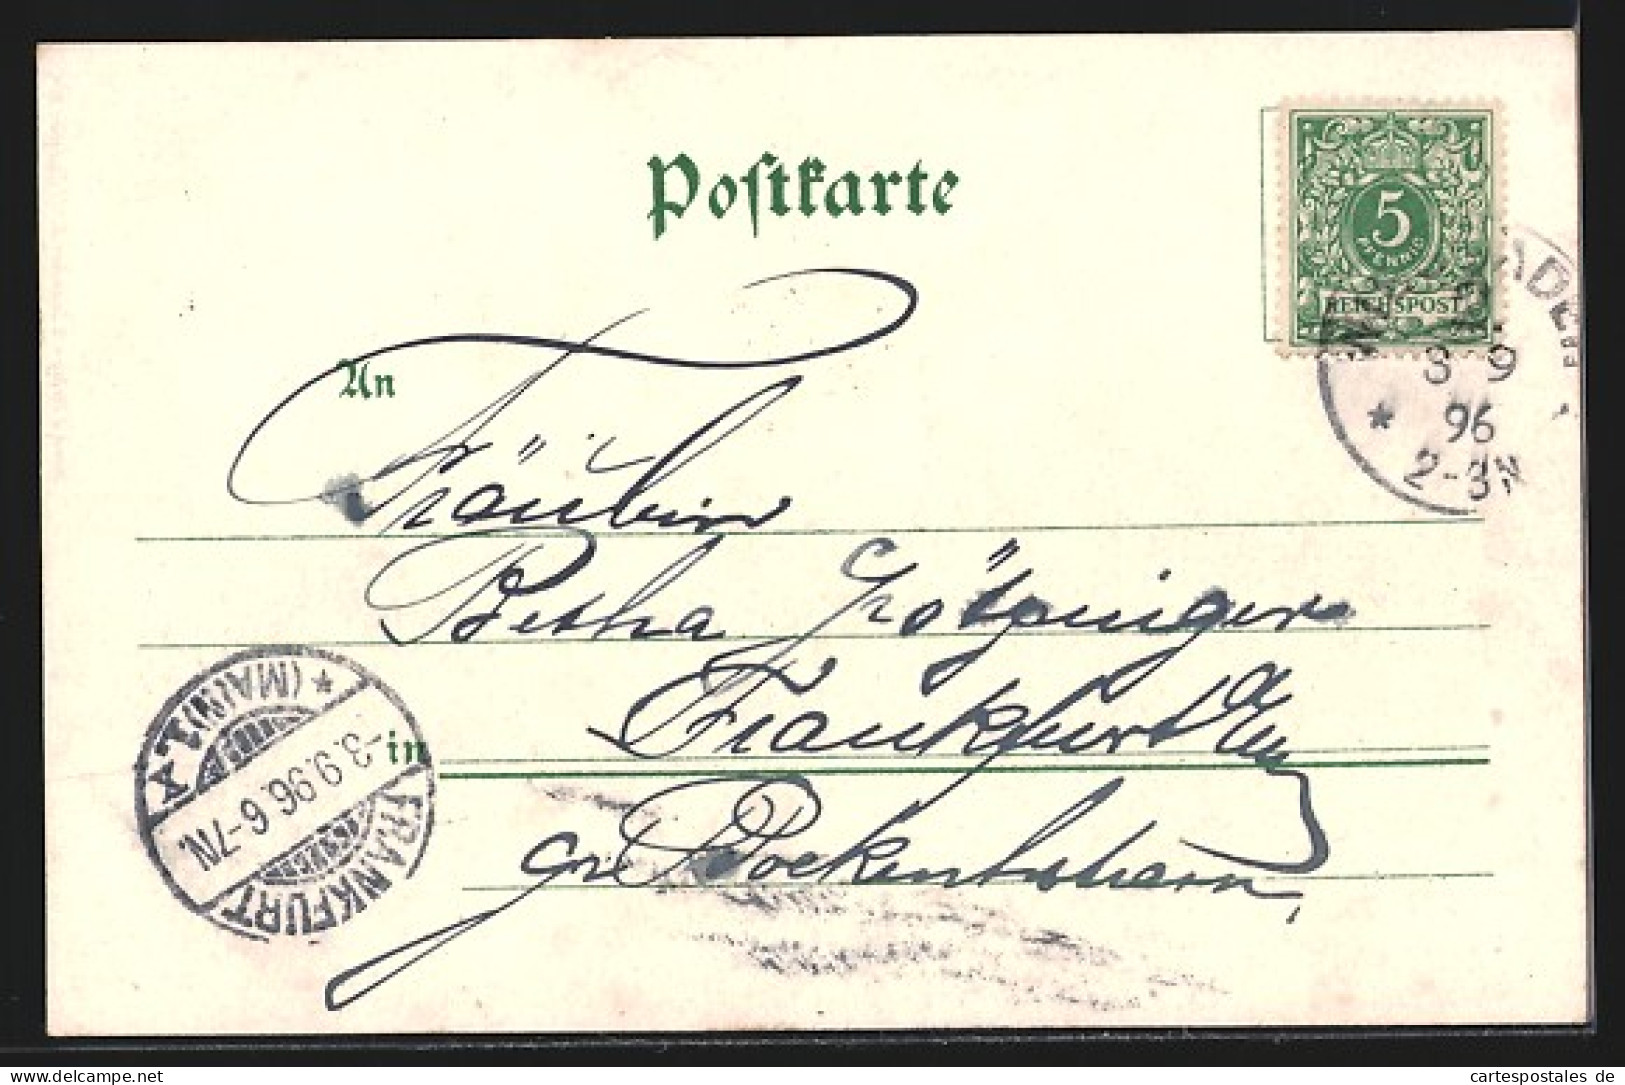 Postkarte
5
PFENNIG
REICHSPOST
3 9
96
2-3N
An
Fräulein
Bertha Grötzinger
Frankfurt a/M
in
gr. Bockenheimer
FRANKFURT
* (MAIN) 1.
-3.9.96.6-7N.
cartespostales de